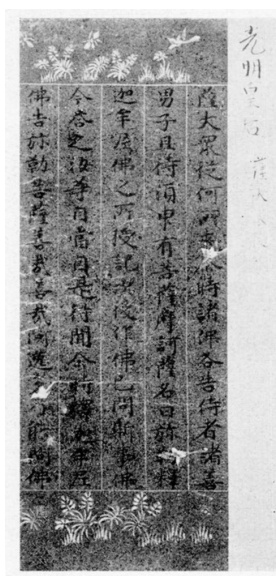 光明皇后
薩大衆從何所來尒時諸佛各告侍者諸善
男子且待須臾有菩薩摩訶薩名曰弥勒釋
迦牟尼佛之所授記次後作佛已問斯事佛
今荅之汝等自當因是得聞尒時釋迦牟尼
佛告弥勒菩薩善哉善哉阿逸多乃能問佛